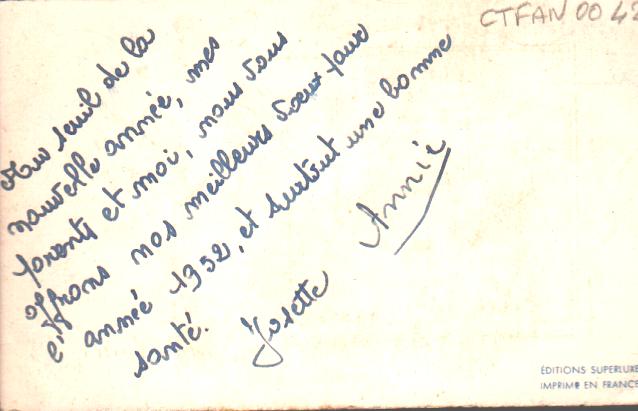 CTFAN 00 42
Au seuil de la
nouvelle année, mes
parents et moi, nous vous
offrons nos meilleurs voeux pour
année 1952, et surtout une bonne
santé.
Josette
Annie
ÉDITIONS SUPERLUXE
IMPRIMÉ EN FRANCE